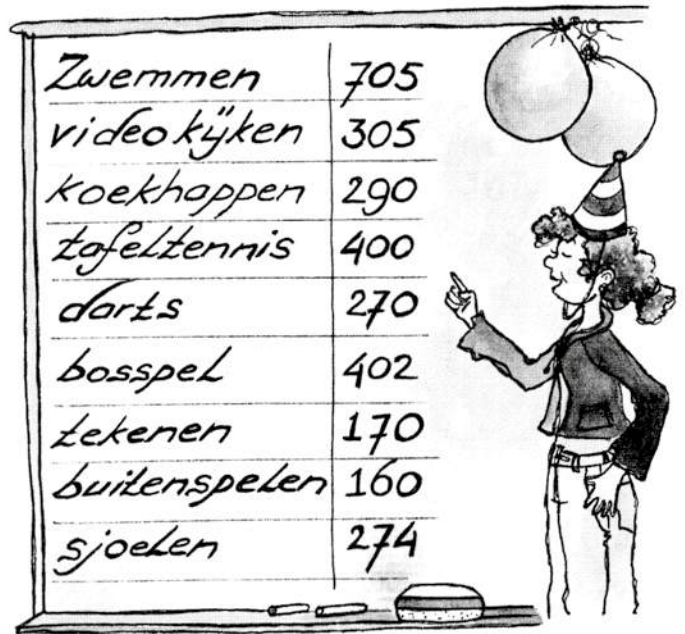 Zwemmen 705
video kijken 305
koekhappen 290
tafeltennis 400
darts 270
bosspel 402
tekenen 170
buitenspelen 160
sjoelen 274